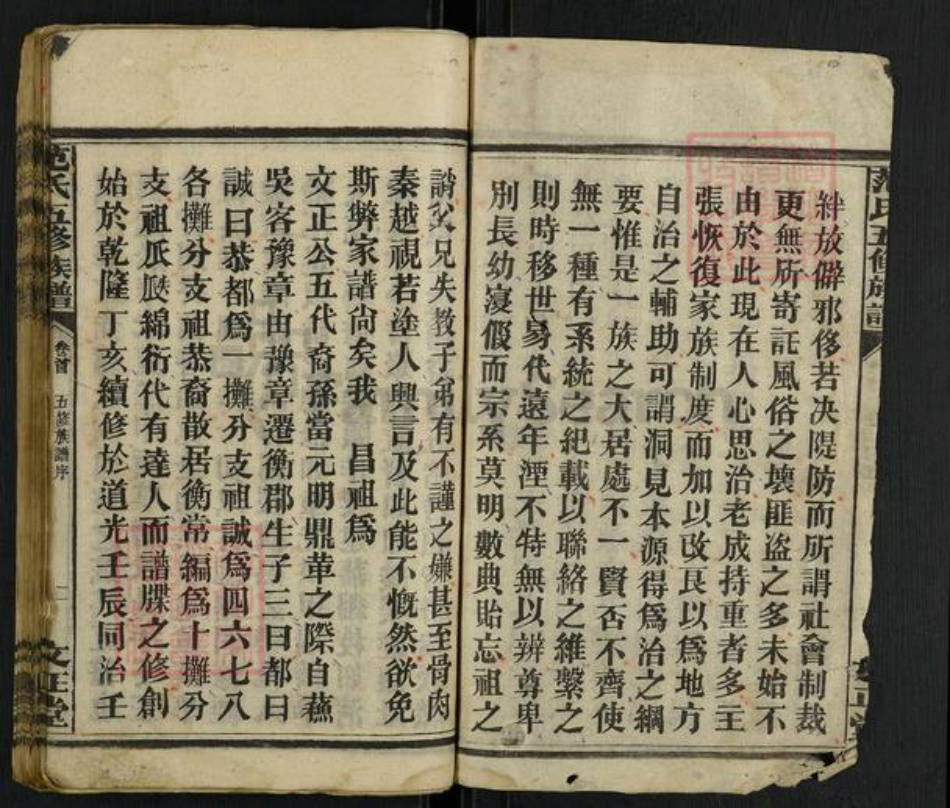 范氏五修族譜
絆放僻邪侈若决隄防而所謂社會制裁
更無所寄託風俗之壞匪盜之多未始不
由於此現在人心思治老成持重者多主
張恢復家族制度而加以改良以爲地方
自治之輔助可謂洞見本源得爲治之綱
要惟是一族之大居處不一賢否不齊使
無一種有系統之紀載以聯絡之維繫之
則時移世易代遠年湮不特無以辨尊卑
別長幼寖假而宗系莫明數典貽忘祖之
誚父兄失教子弟有不謹之嫌甚至骨肉
秦越視若塗人興言及此能不慨然欲免
斯弊家譜尚矣我 昌祖爲
文正公五代裔孫當元明鼎革之際自蘇
吳客豫章由豫章遷衡郡生子三曰都曰
誠曰恭都爲一攤分支祖誠爲四六七八
各攤分支祖恭裔散居衡常編爲十攤分
支祖瓜瓞綿衍代有達人而譜牒之修創
始於乾隆丁亥續修於道光壬辰同治壬
范氏五修族譜
卷首
五修族譜序
一
文正堂